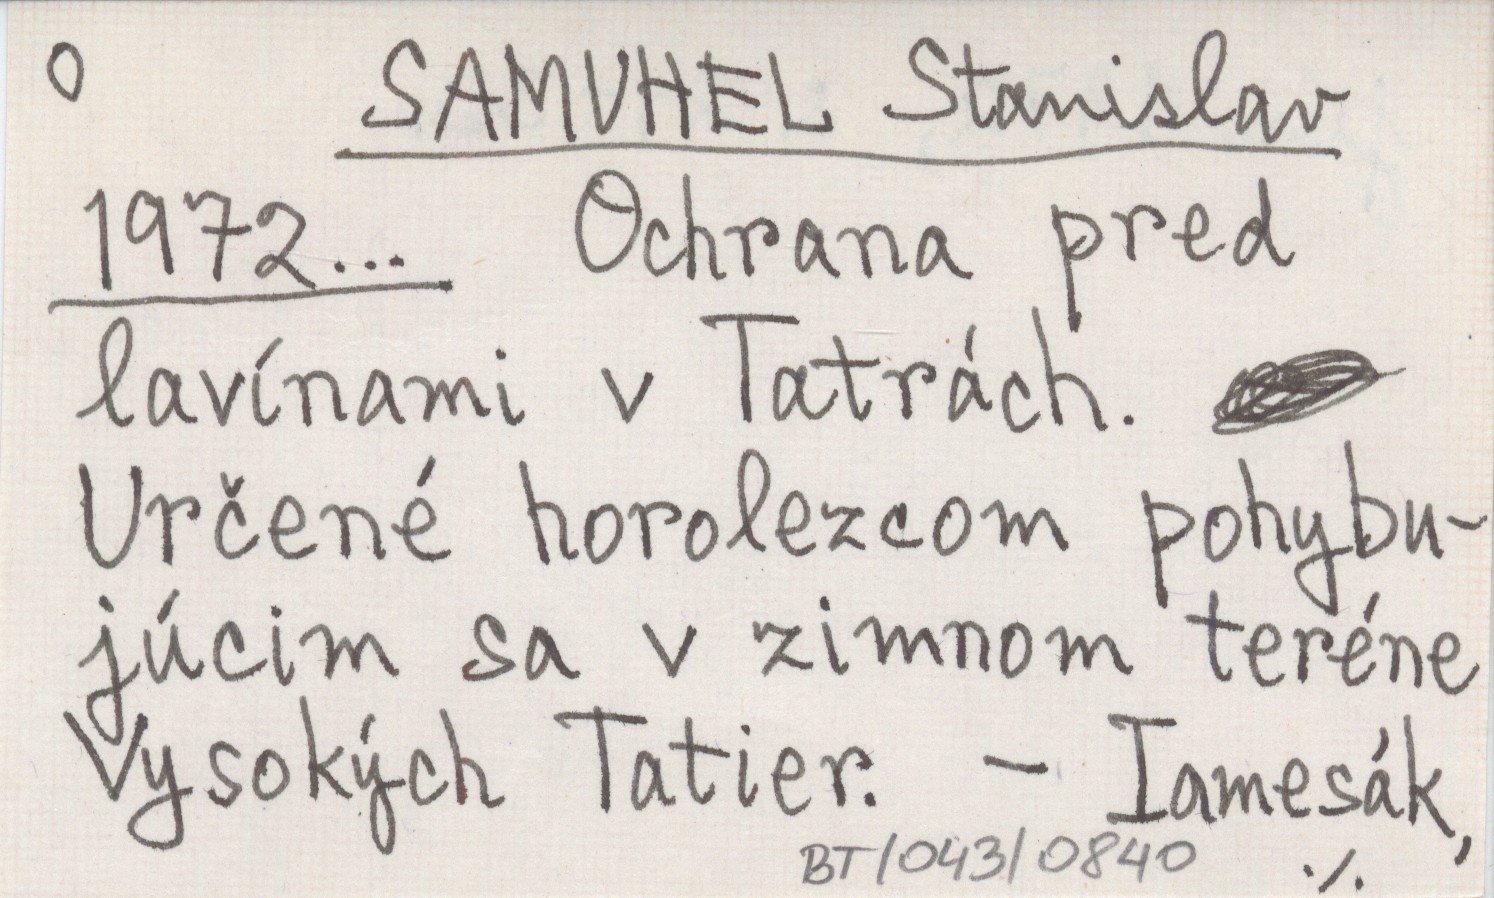 O SAMUHEL Stanislav
1972... Ochrana pred
lavínami v Tatrách.
Určené horolezcom pohybu-
júcim sa v zimnom teréne
Vysokých Tatier. - Iamesák,
BT/043/0840 ./.